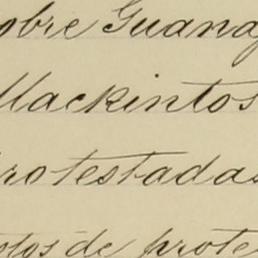 obre Guanaj
Mackintos
rotestadas
stos de prote